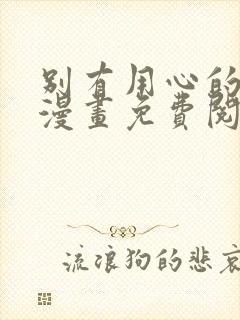 别有用心的
漫畫免費閱
流浪狗的悲哀